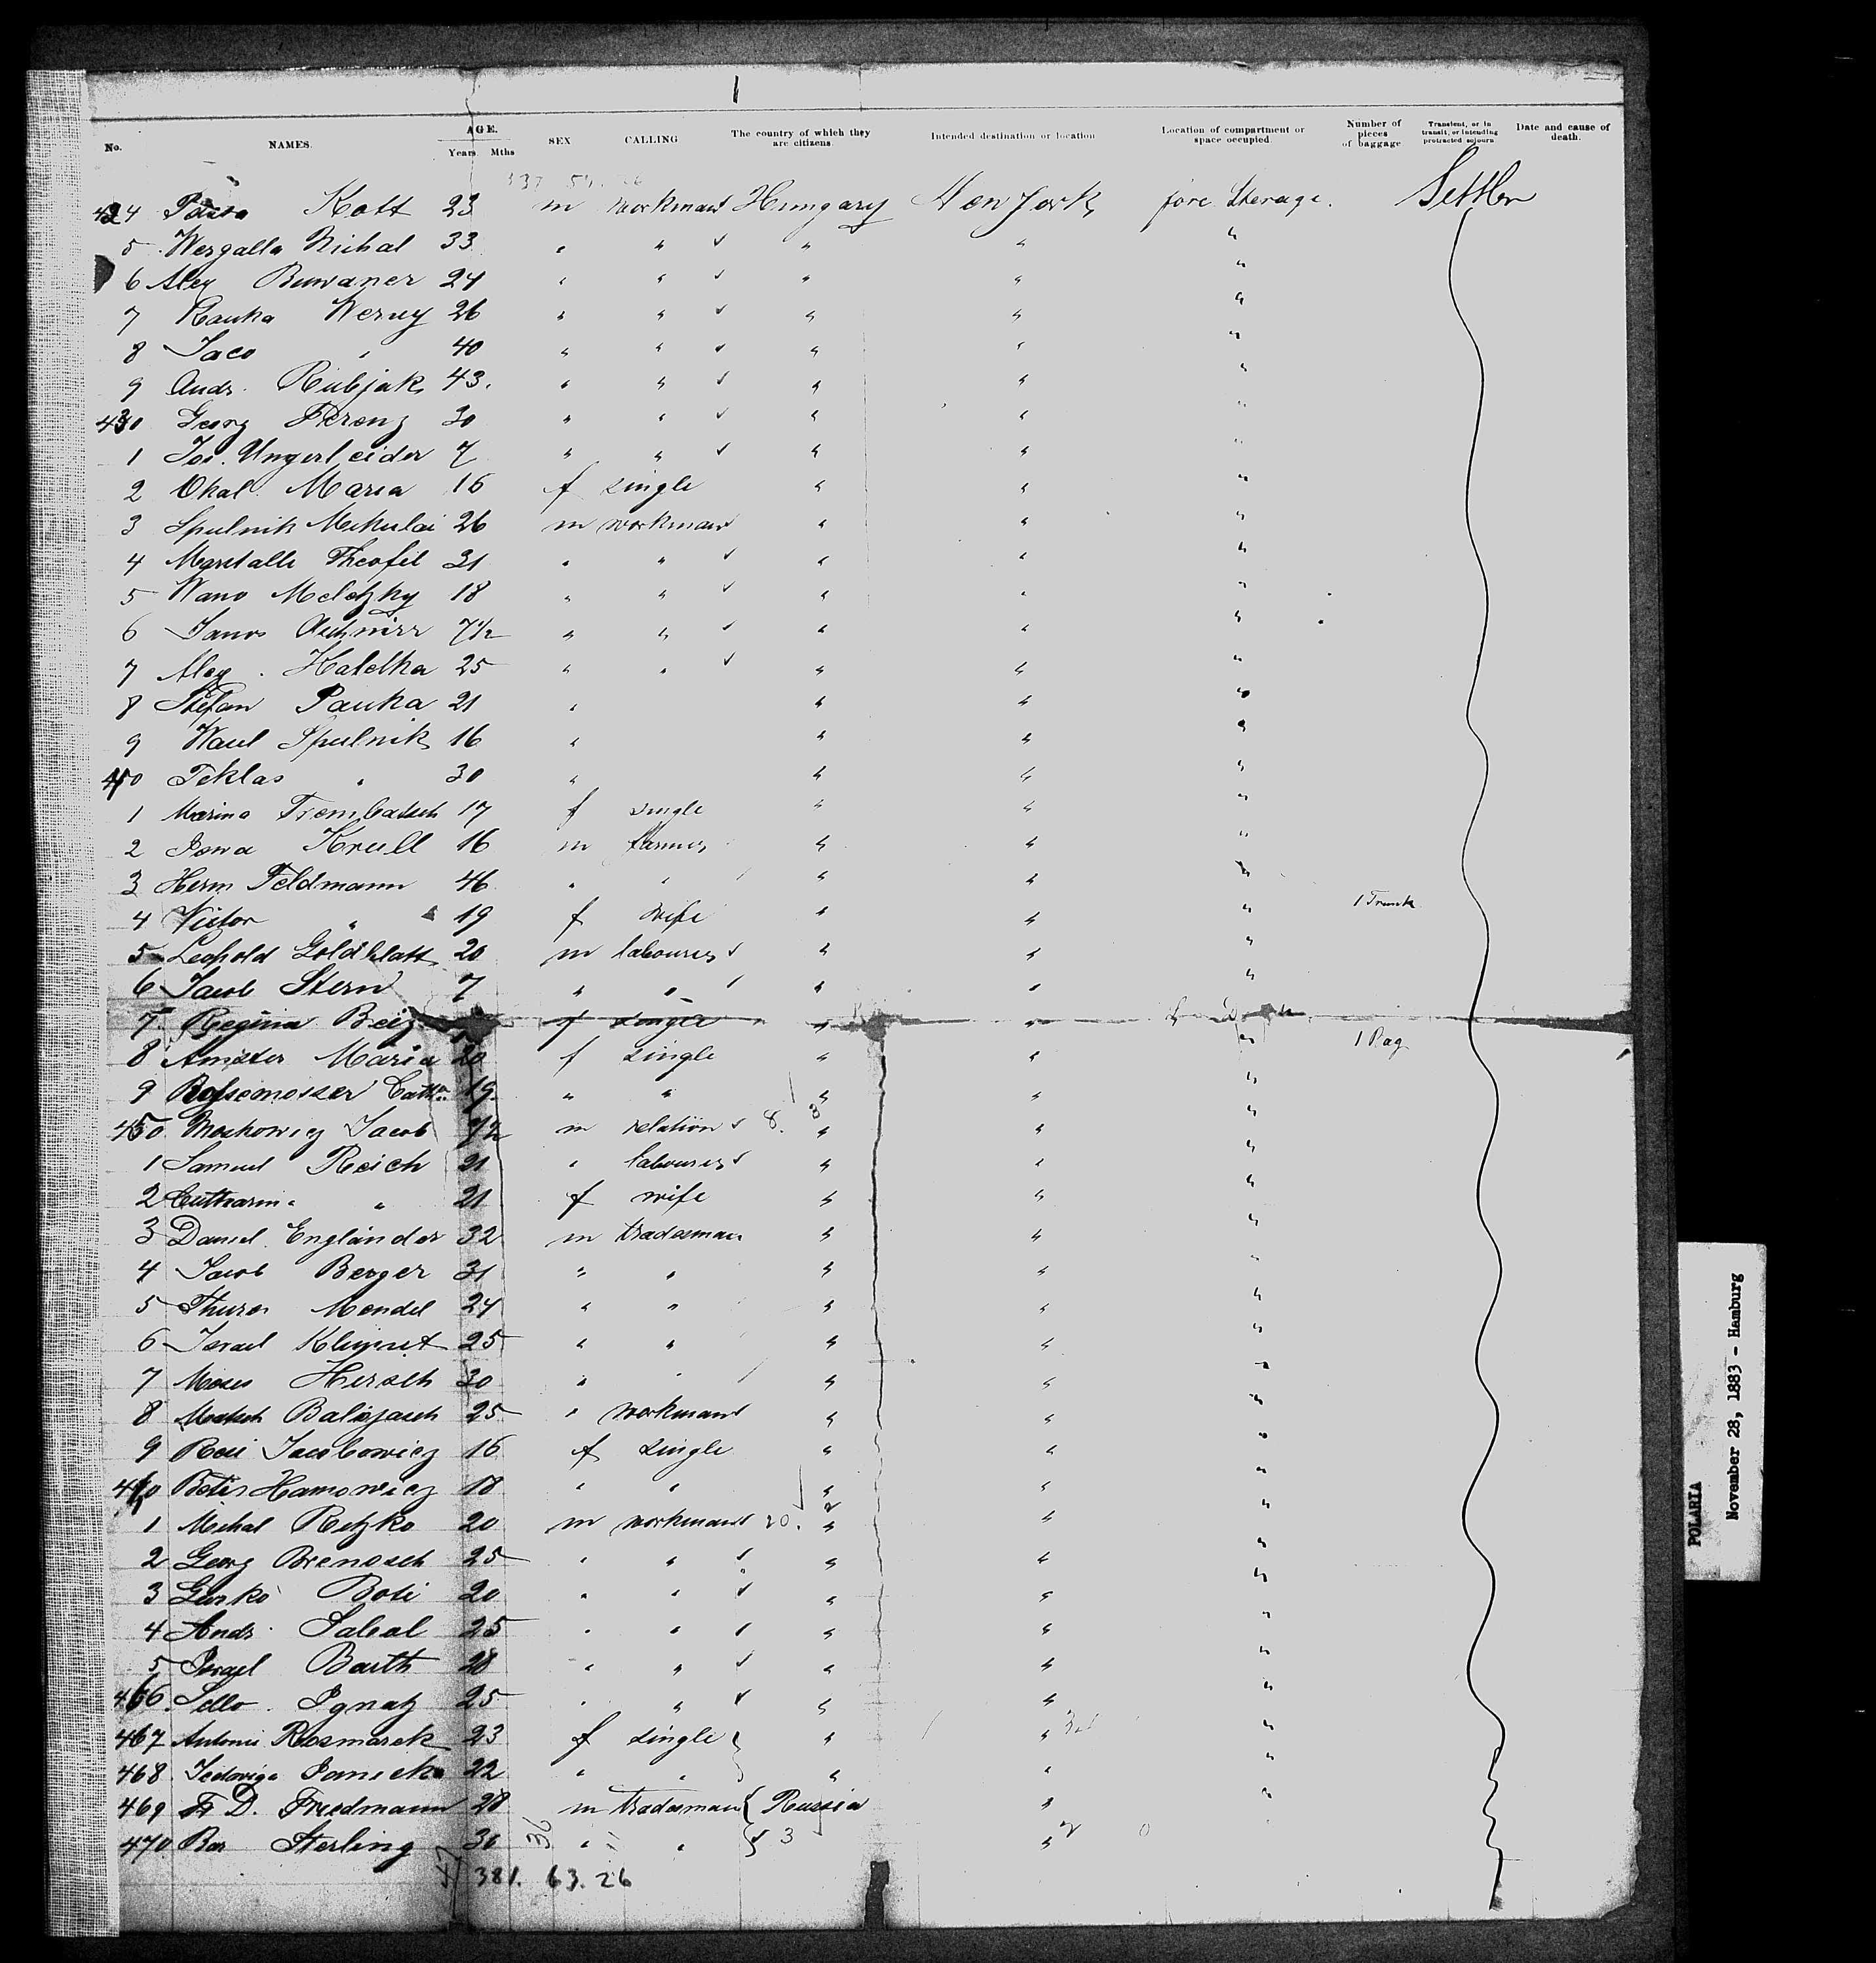 1
No. NAMES. AGE. Years. Mths SEX CALLING The country of which they are citizens. Intended destination or location Location of compartment or space occupied. Number of pieces of baggage Transient, or in transit, or intending protracted sojourn Date and cause of death.
424 Kott 23 m workman Hungary New York fore Sterage. Settler
5 Wergalla Michal 33 " " " " "
6 Alex 24 " " " " "
7 Hanka Weruy 26 " " " " "
8 Jaco " 40 " " " " "
9 Andr. Rubjak 43. " " " " "
430 Georg Ferenz 30 " " " " "
1 Jos. Ungerleider 7 " " " " "
2 Okal Maria 16 f single " " "
3 Spulnik Mikulai 26 m workman " " "
4 Theofil 31 " " " " "
5 Wano Meletzky 18 " " " " "
6 Janos 7½ " " " " "
7 Alex. Haletka 25 " " " " "
8 Stefan Pauka 21 " " " "
9 Wasil Spulnik 16 " " " "
440 Teklas " 30 " " " "
1 Marina Trembatsch 17 f single " " "
2 Krull 16 m farmer " " "
3 Herm Feldmann 46 " " " " "
4 Victor " 19 f wife " " " 1 Trunk
5 Leopold Goldblatt 20 m labourer " " "
6 Jacob Stern 7 " " " " "
7 Regina f single " "
8 Amster Maria 20 f single " " " 1 Bag
9 Cath. 19 " " " " "
450 Moskowicz Jacob 7½ m relation 8. 3 " " "
1 Samuel Reich 21 " labourer " " "
2 Catharina " 21 f wife " " "
3 Daniel Engländer 32 m tradesman " " "
4 Jacob Berger 31 " " " " "
5 Mendel 24 " " " " "
6 Israel 25 " " " " "
7 Moses Hersch 30 " " " " "
8 25 " workman " " "
9 Rosi Jacobowicz 16 f single " " "
460 Hamowicz 18 " " " " "
1 Michal Retzko 20 m workman 20. 2 " " "
2 Georg 25 " " " " "
3 20 " " " " "
4 Andr. 25 " " " " "
5 Israel Barth 28 " " " " "
466 Ignatz 25 " " " " "
467 Antonie Rosmarek 23 f single " " "
468 Jedwiga 22 " " " " "
469 D. Friedmann 28 m tradesman Russia " "
470 Ber Sterling 30 " " 3 "
36
47 381. 63. 26
POLARIA
November 28, 1883 - Hamburg